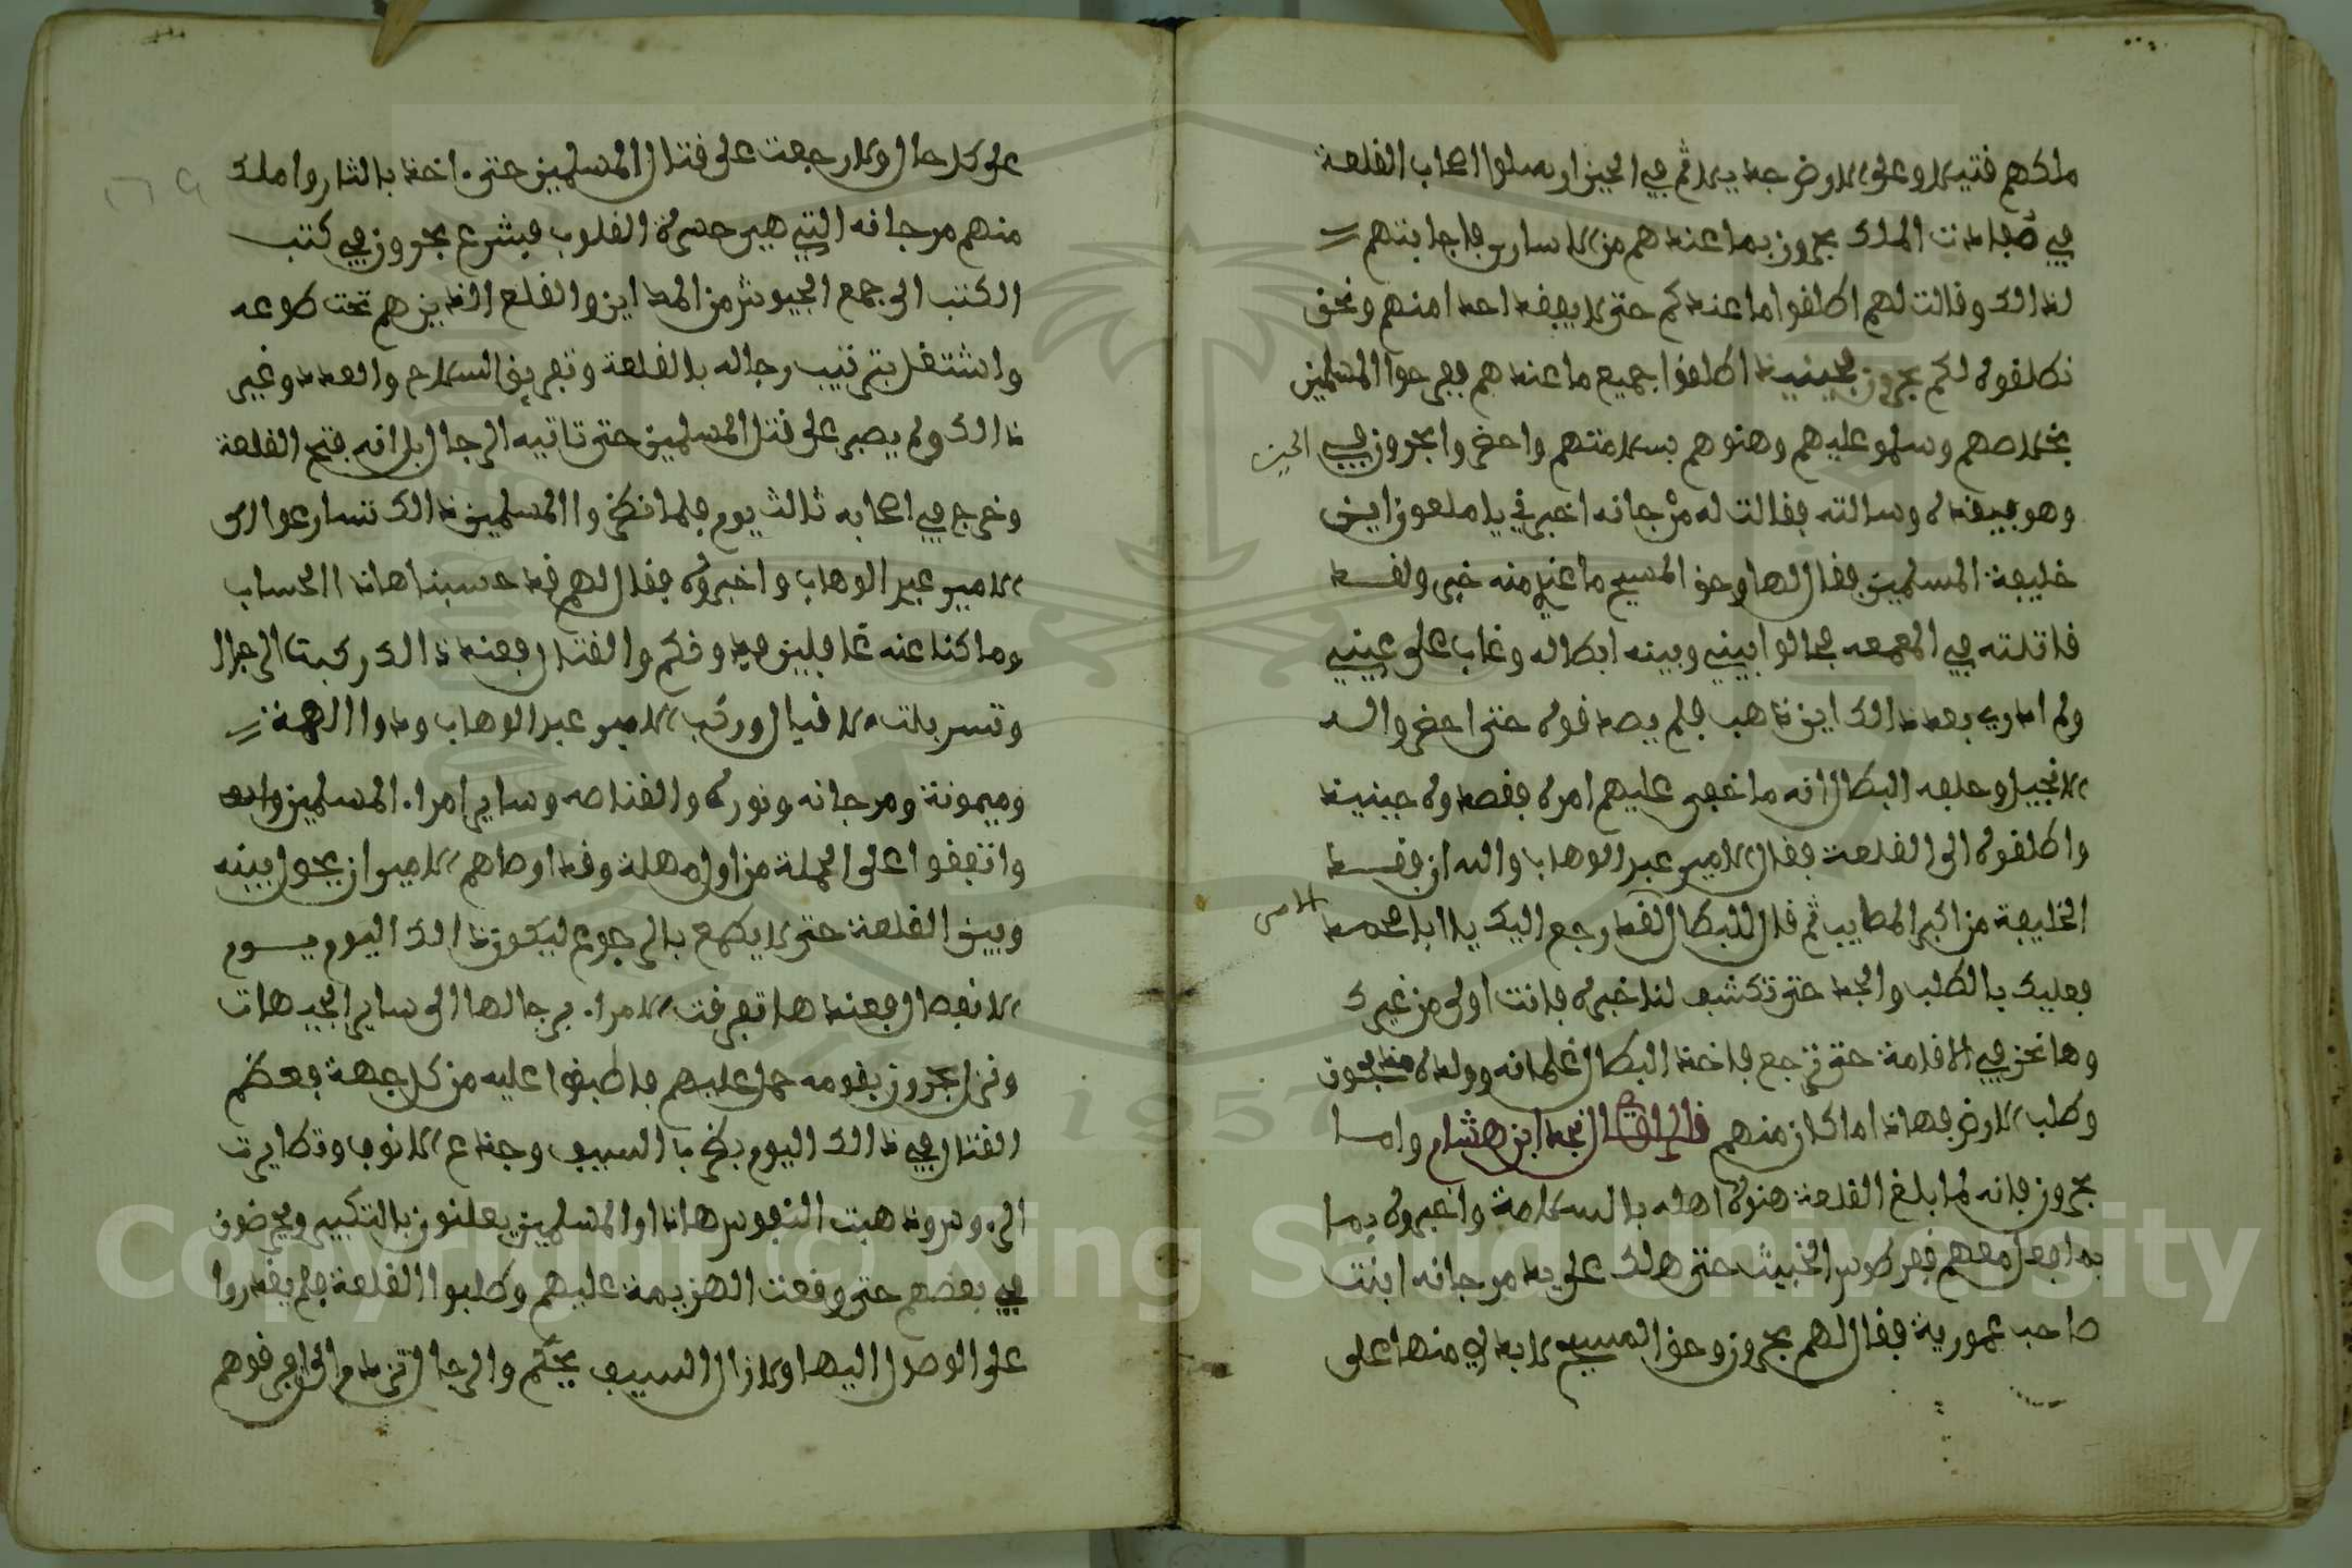 ملكهم قتيلا وعلى الارض جديلا ثم في الحين ارسلوا اصحاب القلعة
في فداءت الملك بحرون بما عندهم من الاسارى فاجابتهم
لذالك وقالت لهم اطلقوا ما عندكم حتى لا يبقى احدا منهم ونحن
نطلقوه لكم بحرون فحينيذ اطلقوا جميع ما عندهم ففرحوا المسلمين
بخلاصهم وسلمو عليهم وهنوهم بسلامتهم واحضروا بحرون في الحين
وهو بقيده وسالته فقالت له مرجانه اخبرني يا ملعون اين
خليفة المسلمين فقال لها وحق المسيح ما عندي منه خبر ولقد
قاتلته في المعمعه فحالوا بيني وبينه ابطاله وغاب على عيني
ولم ادري بعد ذالك اين ذهب فلم يصدقوه حتى احضروا له
الانجيل وحلفه البطال انه ما خفى عليهم امره فصدقوه حينيذ
واطلقوه الى القلعة فقال الامير عبد الوهاب والله ان فقد
الخليفة من اكبر المصايب ثم قال للبطال لقد رجع اليك يا ابا محمد الامر
فعليك بالطلب والجد حتى تكشف لنا خبره فانت اولى من غيرك
وها نحن في الاقامة حتى ترجع فاخذ البطال غلمانه وولده مذبحون
وطلب الارض فهاذا ما كان منهم قال الراوي نجد ابن هشام واما
بحرون فانه لما بلغ القلعة هنوه اهله بالسلامة واخبروه بما
بما فعل معهم قرطوس الخبيث حتى هلك على يد مرجانه ابنت
صاحب عمورية فقال لهم بحرون وحق المسيح لا بد لي منها على
على كل حال ولا رجعت على قتال المسلمين حتى ءاخذ بالثار واملك
منهم مرجانه التي هي حسرة القلوب فشرع بحرون في كتب
الكتب الى جمع الجيوش من المداين والقلع الذين هم تحت طوعه
واشتغل بترتيب رجاله بالقلعة وتفريق السلاح والعدد وغير
ذالك ولم يصبر على قتل المسلمين حتى تاتيه الرجال بل انه فتح القلعة
وخرج في اصحابه ثالث يوم فلما نظروا المسلمين ذالك تسارعوا الى
الامير عبد الوهاب واخبروه فقال لهم قد حسبنا هاذا الحساب
وما كنا عنه غافلين فدونكم والقتال فعند ذالك ركبت الرجال
وتسربلت الاقيال وركب الامير عبد الوهاب وذوا الهمة
وميمونة ومرجانه ونوره والقناصه وساير امراء المسلمين
واتفقوا على الحملة من اول وهلة وقد اوصاهم الامير ان يحولو بينه
وبين القلعة حتى لا يطمع بالرجوع ليكون ذالك اليوم يوم
الانفصال فعندها تفرقت الامراء برجالها الى ساير الجيهات
ونزل بحرون بقومه حمل عليهم فاطبقوا عليه من كل جهة فعظم
القتال في ذالك اليوم بضربا السيف وجذع الانوف وتطايرت
الرءوس وذهبت النفوس هاذا والمسلمين يعلنون بالتكبير ويحرضون
في بعضهم حتى وقعت الهزيمة عليهم وطلبوا القلعة فلم يقدروا
على الوصل اليها ولازال السيف يحكم والرجال تزدام الى فرقوهم